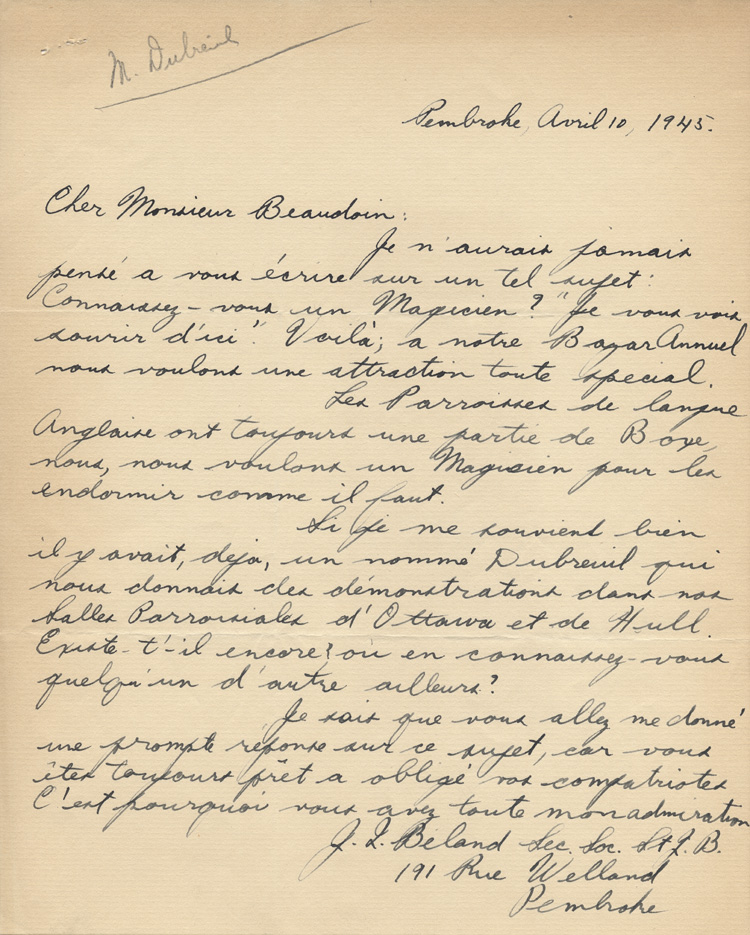 M. Dubreuil
Pembroke, Avril 10, 1945.
Cher Monsieur Beaudoin:
Je n'aurais jamais
pensé a vous écrire sur un tel sujet:
Connaissez-vous un Magicien? "Je vous vois
sourir d'ici". Voilà; a notre Bazar Annuel
nous voulons une attraction toute special.
Les Parroisses de langue
Anglaise ont toujours une partie de Boxe,
nous, nous voulons un Magicien pour les
endormir comme il faut.
Si je me souvient bien
il y avait, deja, un nommé Dubreuil qui
nous donnais des démonstrations dans nos
Salles Parroisiales d'Ottawa et de Hull.
Existe-t'-il encore? où en connaissez-vous
quelqu'un d'autre ailleurs?
Je sais que vous allez me donné
une prompte réponse sur ce sujet, car vous
êtes toujours prêt a obligé vos compatriotes
C'est pourquoi vous avez toute mon admiration
J. I. Béland Sec. Soc. St J. B.
191 Rue Welland
Pembroke